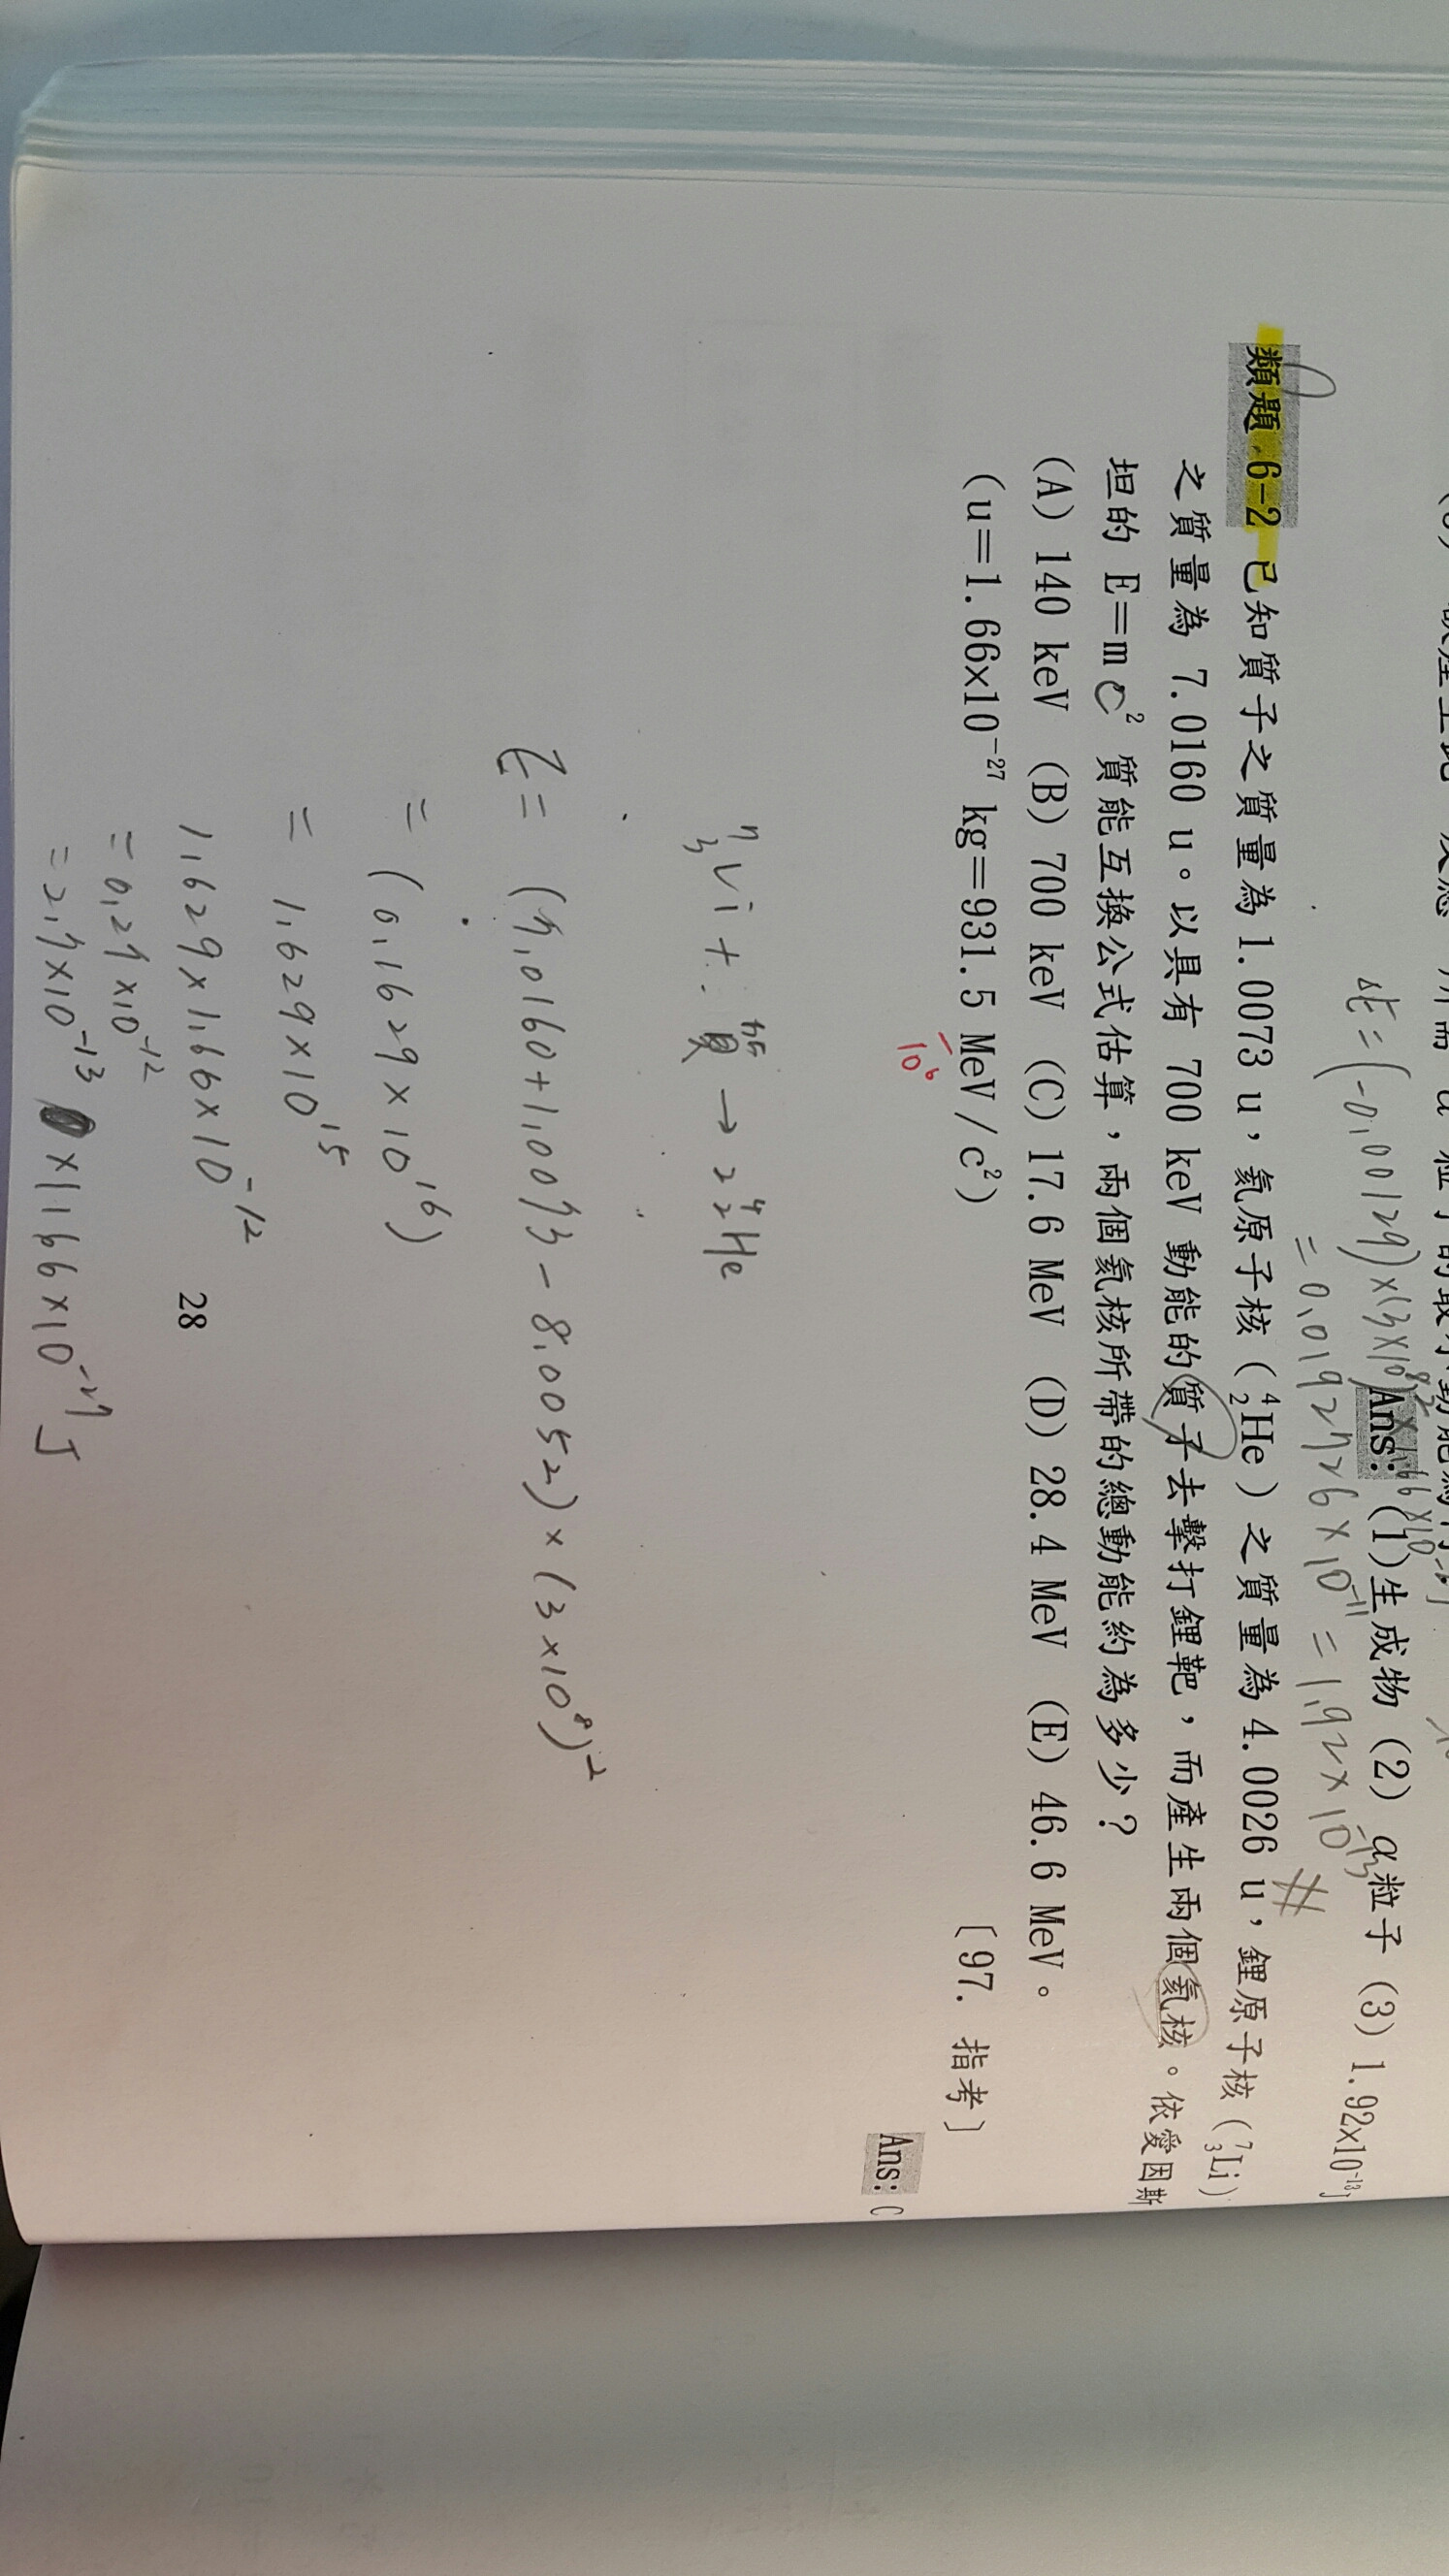 ΔE=(-0.00129)×(3×10⁸)²×1.66×10⁻²⁷
=0.0192726×10⁻¹¹=1.92×10⁻¹³ #
Ans:(1)生成物 (2) α粒子 (3) 1.92x10⁻¹³J
類題 6-2 已知質子之質量為 1.0073 u,氦原子核(⁴₂He)之質量為 4.0026 u,鋰原子核(⁷₃Li)
之質量為 7.0160 u。以具有 700 keV 動能的質子去擊打鋰靶,而產生兩個氦核。依愛因斯
坦的 E=mc² 質能互換公式估算,兩個氦核所帶的總動能約為多少?
(A) 140 keV (B) 700 keV (C) 17.6 MeV (D) 28.4 MeV (E) 46.6 MeV。
(u=1.66x10⁻²⁷ kg=931.5 MeV/c²) 〔97. 指考〕
10⁶
Ans: C
⁷₃Li + 質 → 2⁴₂He
E= (7.0160+1.0073-8.0052)×(3×10⁸)²
= (0.1629×10¹⁶)
= 1.629×10¹⁵
1.629×1.66×10⁻¹²
=0.27×10⁻¹²
=2.7×10⁻¹³ ×1.66×10⁻²⁷ J
28